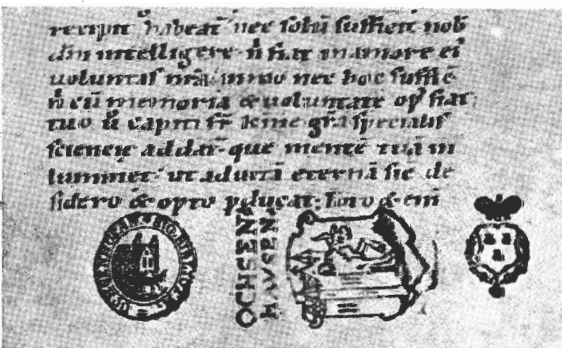 habeat nec solū sufficit nob
intelligere n̄ fiat in amore ei
uoluntas nr̄a nec hoc suffic̄
n̄ cū memoria & uoluntate op̄ fiat
tuo capiti gr̄a specialis
addat que mentē tuā in
luminet ut ad uitā eternā sic de
sidero & opto ꝑducat
OCHSEN
HAVSEN